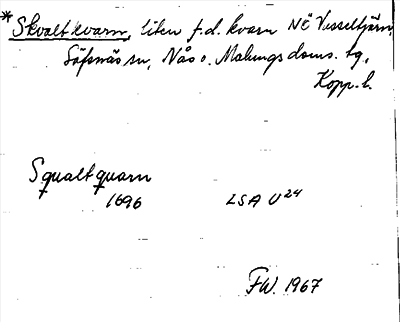 *Skvaltkvarn, liten f.d. kvarn NÖ Vesseltjärn
Säfsnäs sn, Nås o. Malungs doms. tg,
Kopp. l.
Squaltquarn
1696 LSA U 24
FW. 1967